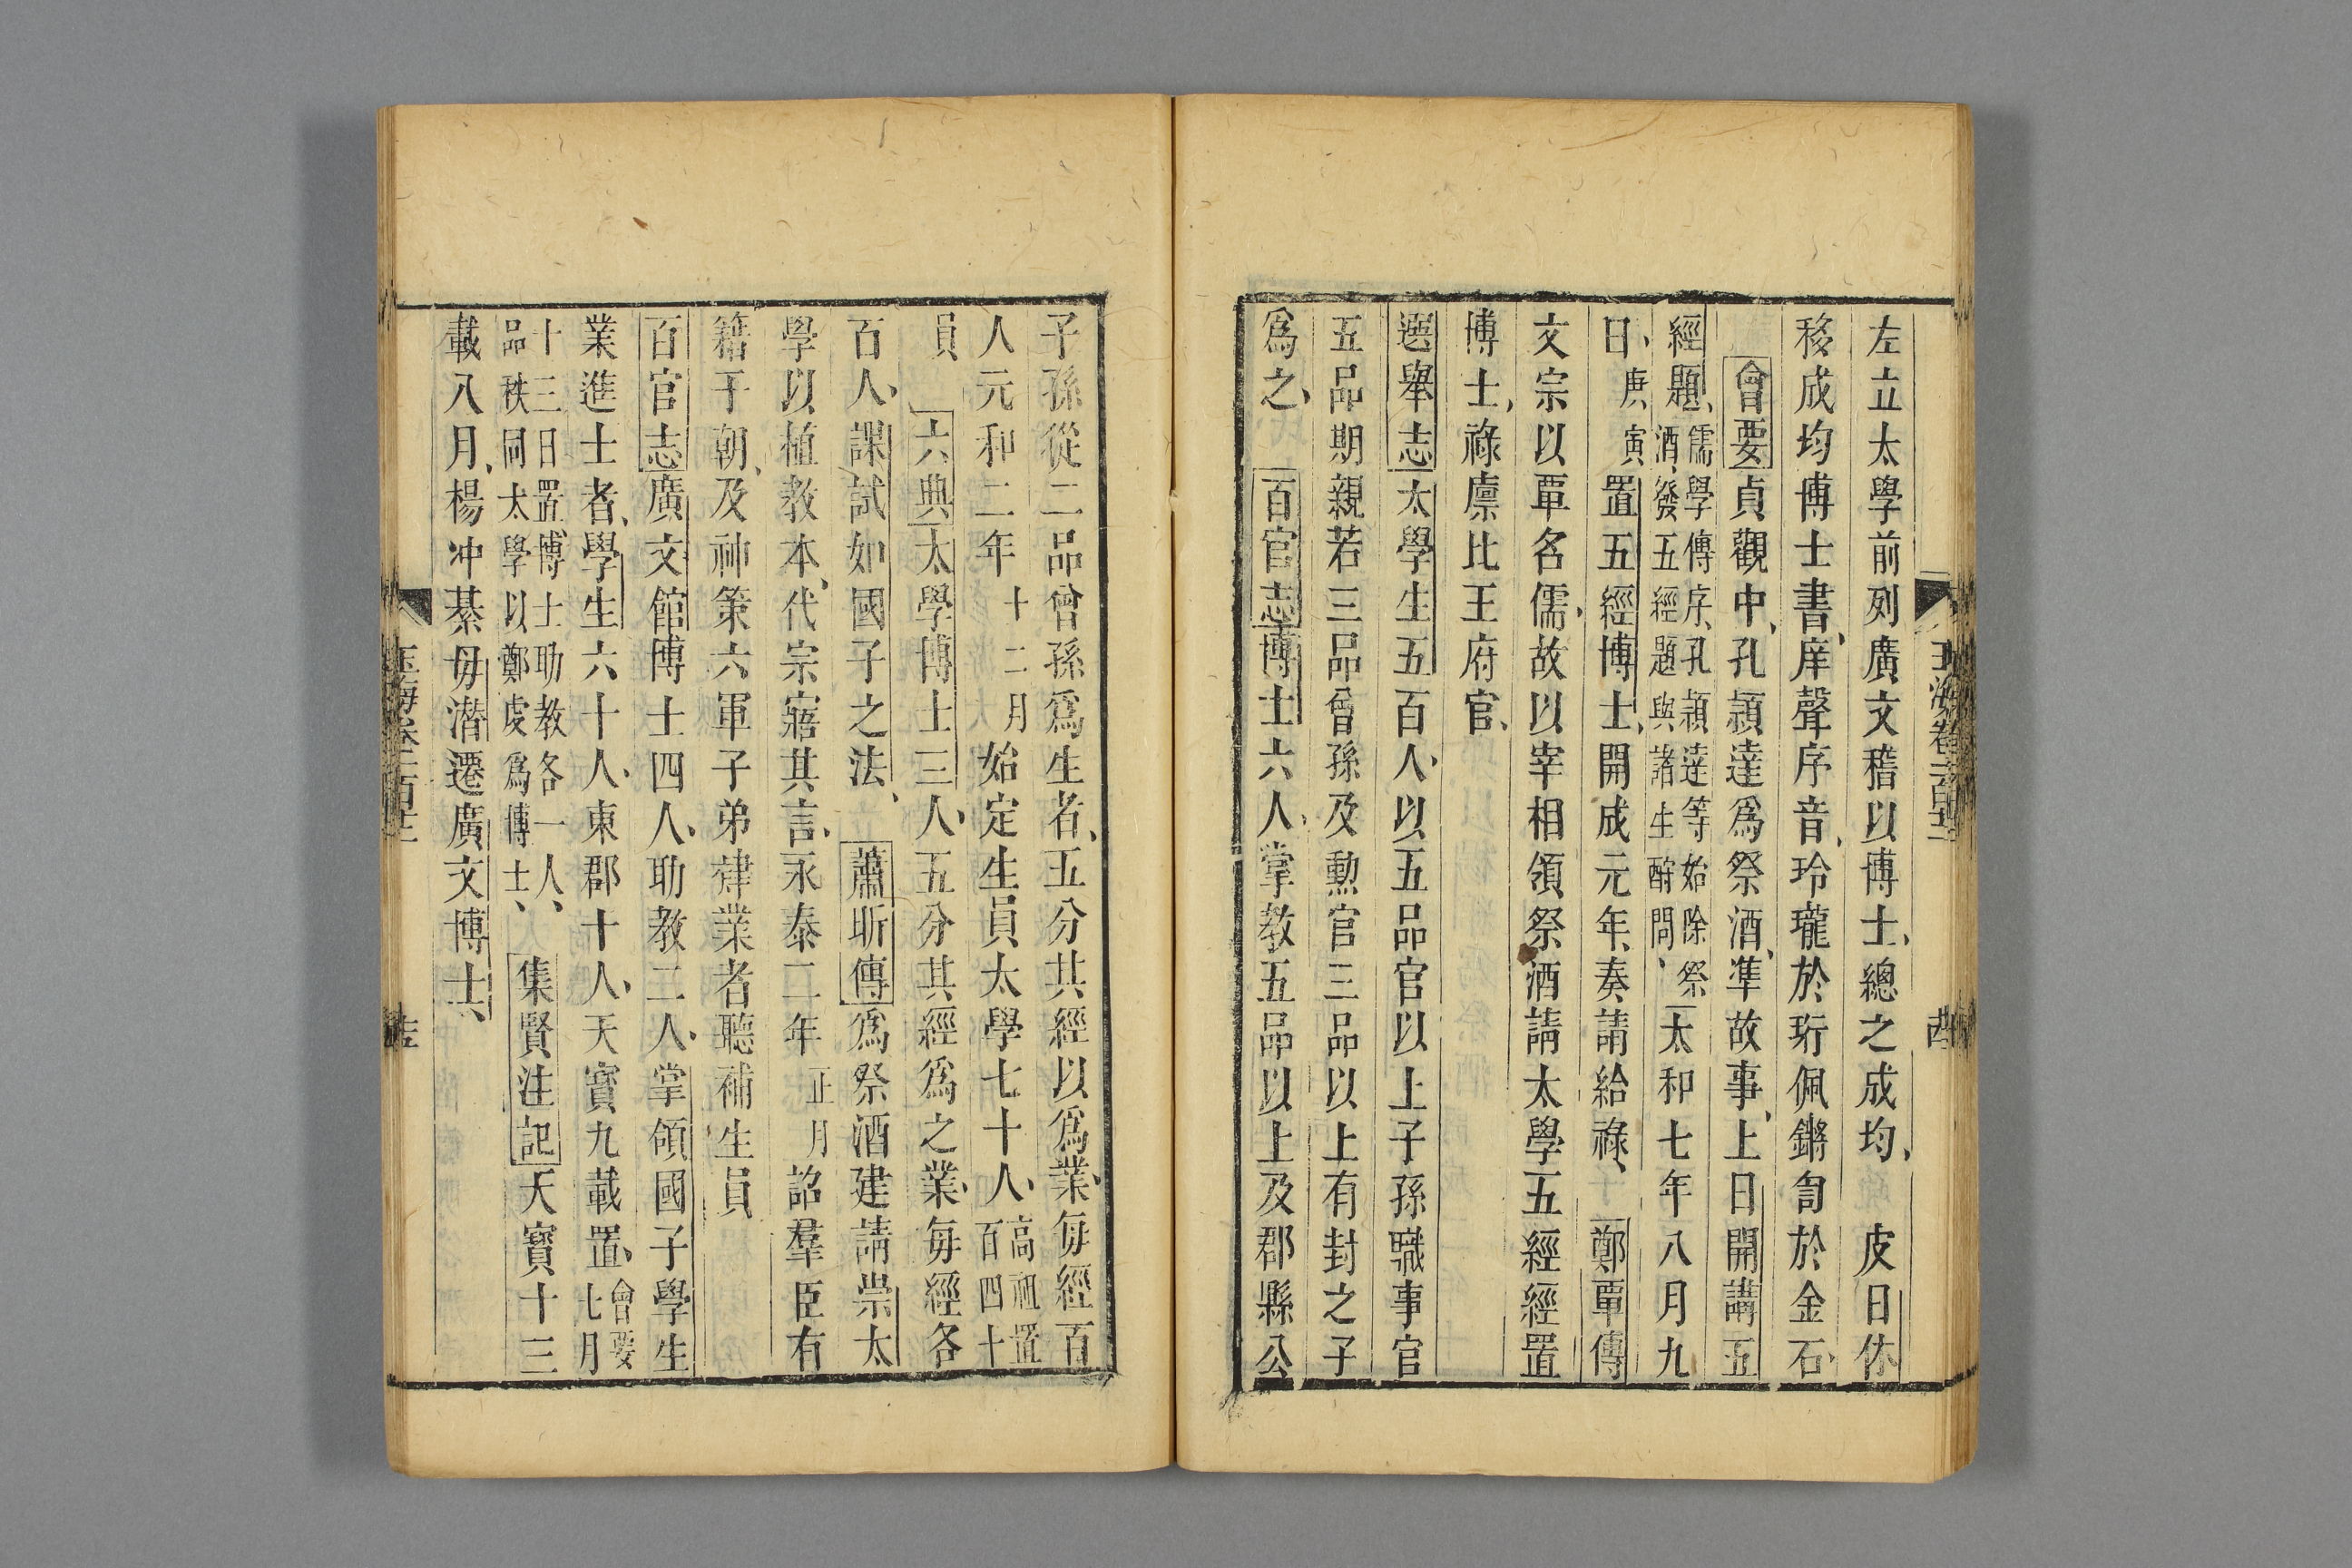 左立太學前列廣文稽以博士、總之成均、　皮日休
移成均博士書、庠聲序音、玲瓏於珩佩鏘訇於金石、
會要貞觀中、孔頴達爲祭酒、準故事、上日開講五
經題、儒學傳序、孔頴達等始除祭酒、發五經題與諸生酧問、太和七年八月九
日、庚寅置五經博士、開成元年、奏請給祿、　鄭覃傳
文宗以覃名儒、故以宰相領祭酒請太學五經經置
博士、祿廪比王府官、
選舉志太學生五百人、以五品官以上子孫職事官
五品期親若三品曾孫及勳官三品以上有封之子
爲之、　百官志博士六人、掌教五品以上及郡縣公
子孫從二品曾孫爲生者、五分共經以爲業、每經百
人元和二年十二月始定生員太學七十人、高祖置百四十
員　六典太學博士三人、五分其經爲之業、每經各
百人、課試如國子之法、　蕭昕傳爲祭酒建請崇太
學以植教本、代宗寤其言、永泰二年正月詔羣臣有
籍于朝、及神策六軍子弟肄業者聽補生員
百官志廣文館博士四人、助教二人、掌領國子學生
業進士者、學生六十人、東郡十人、天寶九載置、會要七月
十三日置、博士助教各一人、品秩同太學以鄭虔爲博士、　集賢注記天寶十三
載八月、楊冲綦毋潜遷廣文博士、